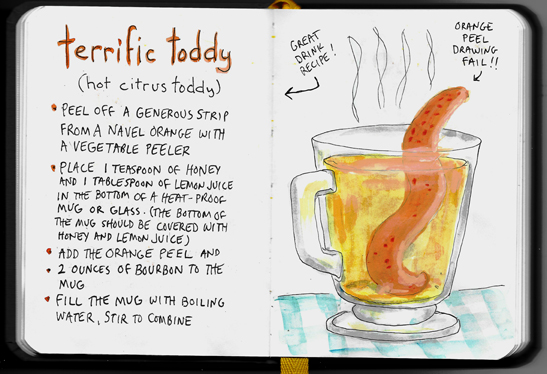 terrific toddy
(hot citrus toddy)
PEEL OFF A GENEROUS STRIP
FROM A NAVEL ORANGE WITH
A VEGETABLE PEELER
PLACE 1 TEASPOON OF HONEY
AND 1 TABLESPOON OF LEMON JUICE
IN THE BOTTOM OF A HEAT-PROOF
MUG OR GLASS. (THE BOTTOM OF
THE MUG SHOULD BE COVERED WITH
HONEY AND LEMON JUICE)
ADD THE ORANGE PEEL AND
2 OUNCES OF BOURBON TO THE
MUG
FILL THE MUG WITH BOILING
WATER, STIR TO COMBINE
GREAT
DRINK
RECIPE!
ORANGE
PEEL
DRAWING
FAIL!!